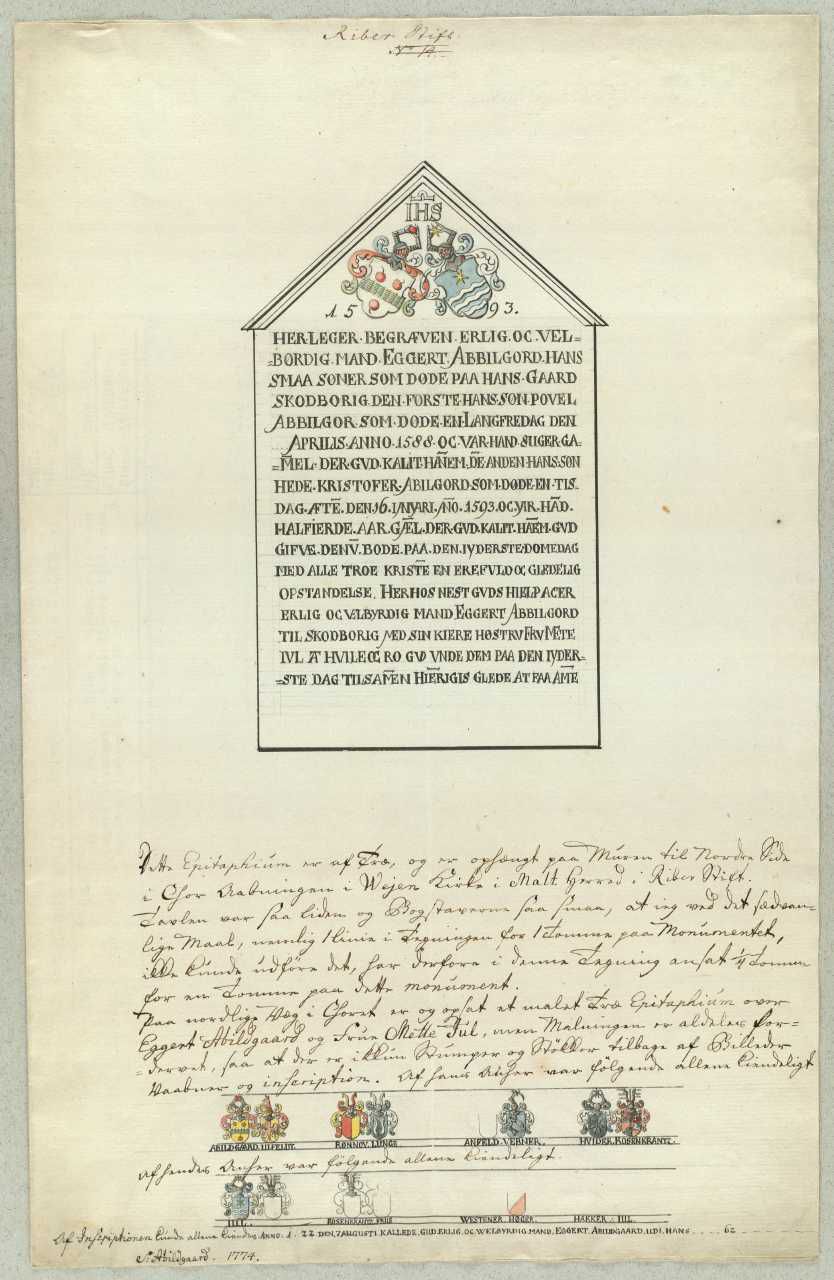 Riber Stift.
No 14.
IHS
15 93.
HER·LEGER·BEGRÆVEN·ERLIG·OC·VEL=
=BORDIG·MAND·EGGERT·ABBILGORD·HANS
SMAA SONER SOM DODE PAA HANS·GAARD
SKODBORIG·DEN·FORSTE·HANS·SØN·POVEL
ABBILGOR·SOM·DODE·EN·LANGFREDAG DEN
APRILIS·ANNO·1588·OC·VAR·HAND·SIUGER·GA=
=M̅EL·DER·GVD·KALIT·HAN̅EM·DE̅·ANDEN·HANS·SØN
HEDE·KRISTOFER·ABILGORD·SOM·DODE·EN·TIS=
DAG·ÆFTE̅·DEN·16·IANVARI·AN̅O·1593·OC·VAR·HAN̅D·
HALFIERDE·AAR·GÆ̅L·DER·GVD·KALIT·HAE̅M·GVD
GIFVÆ·DENV̅·BODE·PAA·DEN·IYDERSTE·DOMEDAG
MED ALLE TROE KRISTE̅ EN EREFVLD OC GLEDELIG
OPSTANDELSE. HERHOS NEST GVDS HIELP ACER
ERLIG OC VELBYRDIG MAND EGGERT ABBILGORD
TIL SKODBORIG MED SIN KIERE HØSTRV FRV METE
IVL AT HVILE OC RO GVD VNDE DEM PAA DEN IYDER=
=STE DAG TILSAM̅EN HIE̅RIGIS GLEDE AT FAA AME̅
Dette Epitaphium er af Træ, og er ophængt paa Muren til Nordre Side
i Chor Aabningen i Wejen Kirke i Malt Herred i Riber Stift.
Tavlen var saa liden og Bogstaverne saa smaa, at jeg ved det sædvan=
lige Maal, nemlig 1 linie i Tegningen for 1 Tomme paa Monumentet,
ikke kunde udføre det, har derfore i denne Tegning ansat 1/4 Tomme
for en Tomme paa dette monument.
Paa nordlige Væg i Choret er og opsat et malet Træ Epitaphium over
Eggert Abildgaard og Frue Mette Jul, men Malningen er aldeles for=
=dervet, saa at der er ikkun Stumper og Stökker tilbage af Billeder
Vaabner og inscription. Af hans Anher var fölgende allene kiendeligt
ABILDGAARD. ULFELDT. RØNNOV. LUNGE ANFELD. VERNER. HVIDER. ROSENKRANTZ.
Af hendes Anher var fölgende allene kiendeligt.
IUL. ROSENKRANTZ. FRIIS WESTENER. HØGER. HAKKER. IUL.
Af Inscriptionen kunde allene kiendes ANNO. 1. 22 DEN. 7 AUGUSTI. KALLEDE. GUD. ERLIG. OC. WELBYRDIG. MAND. EGGERT. ABILDGAARD. UDI. HANS .... 62
S. Abildgaard. 1774.